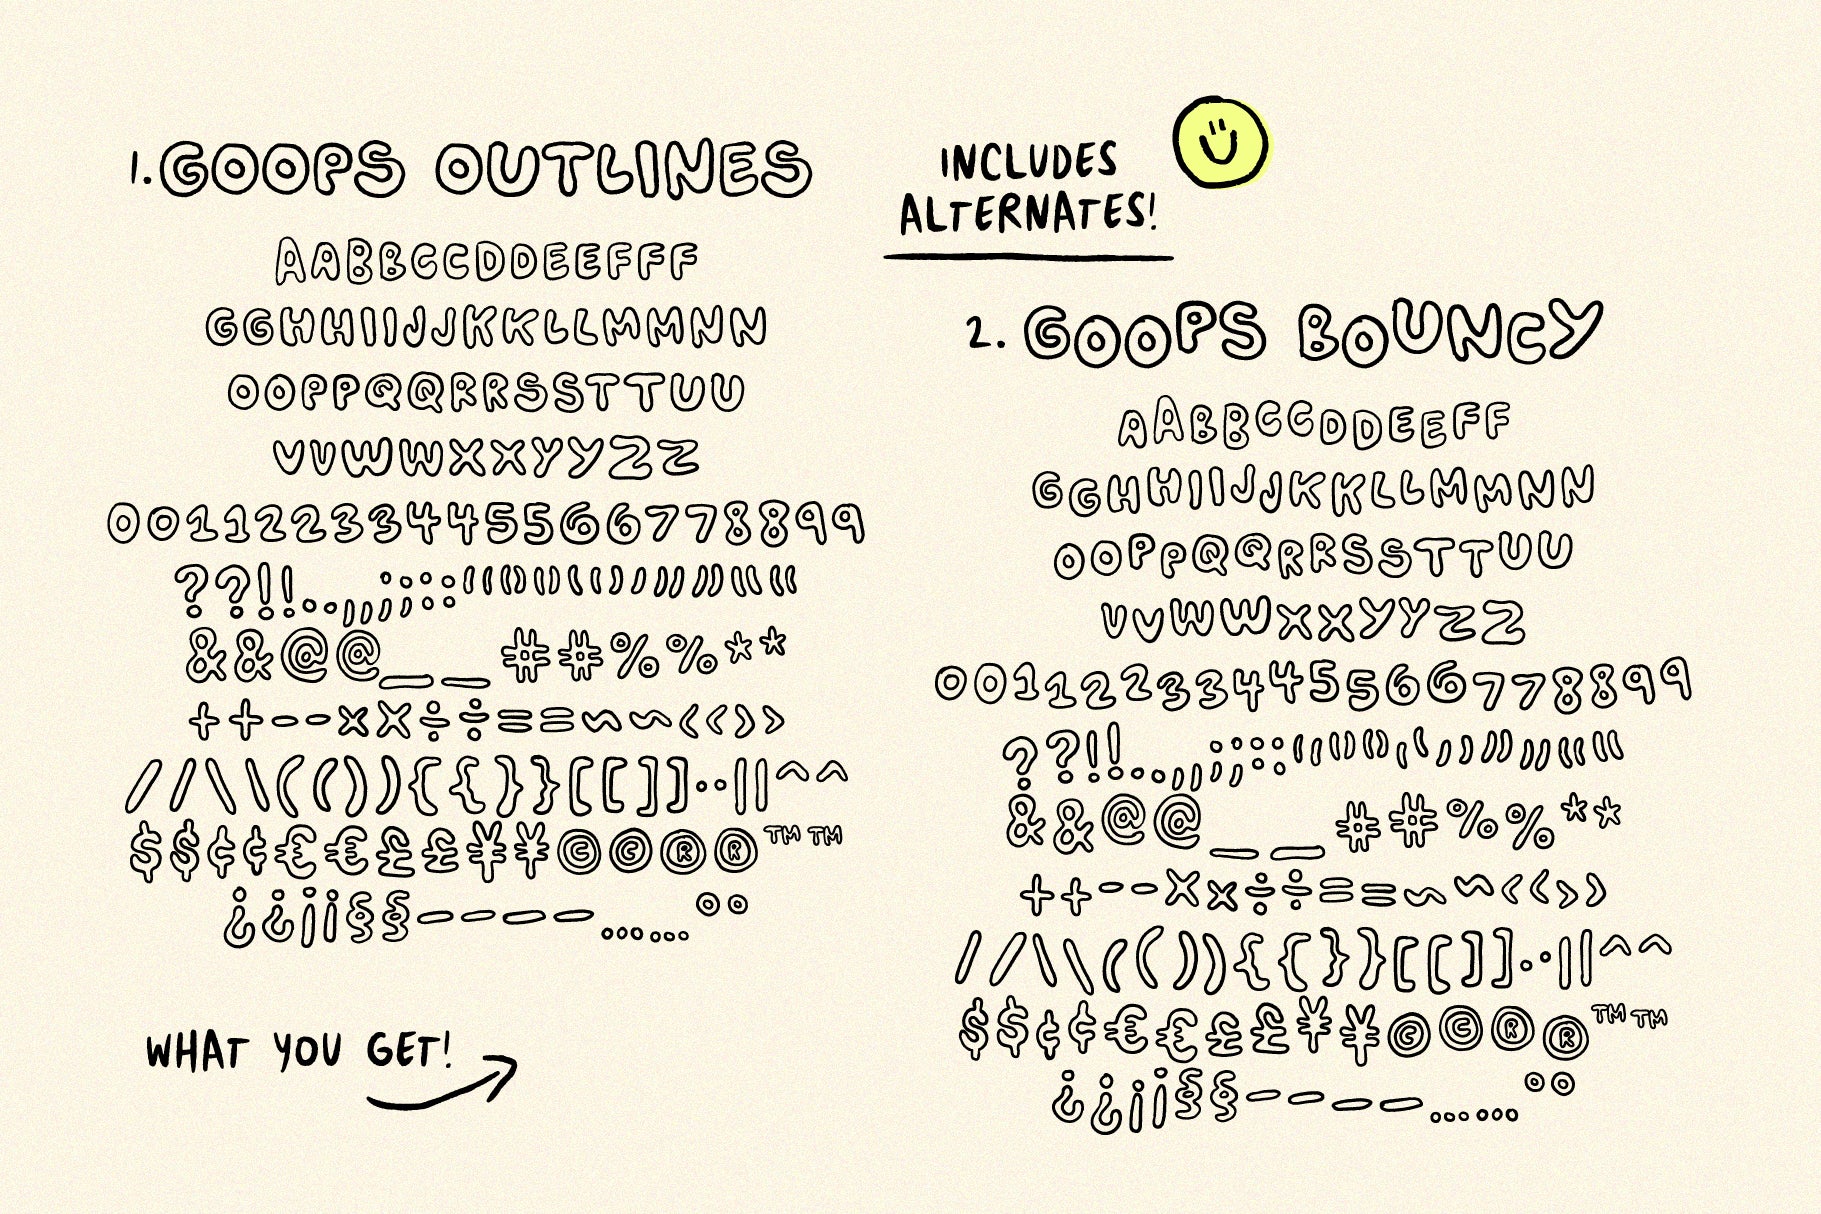 1. GOOPS OUTLINES
AABBCCDDEEFFF
GGHHIIJJKKLLMMNN
OOPPQQRRSSTTUU
VVWWXXYYZZ
00112233445566778899
??!!..,,;;::''""''‚‚""""
&&@@__##%%**
++--××÷÷==~~‹‹››
//\\(()){{}}[[]]··||^^
$$¢¢€€££¥¥©©®®™™
¿¿¡¡§§––——……°°
WHAT YOU GET!
INCLUDES
ALTERNATES!
2. GOOPS BOUNCY
AABBCCDDEEFF
GGHHIIJJKKLLMMNN
OOPPQQRRSSTTUU
VVWWXXYYZZ
00112233445566778899
??!!..,,;;::''""''""""
&&@@__##%%**
++--××÷÷==~~‹‹››
//\\(()){{}}[[]]··||^^
$$¢¢€€££¥¥©©®®™™
¿¿¡¡§§––——……°°